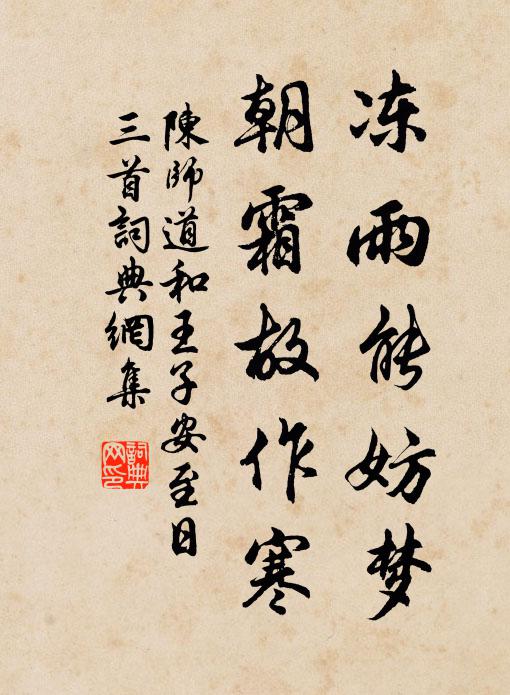 冻雨能妨梦
朝霜故作寒
陳師道和王子安至日
三首詞典網集
詞典網印